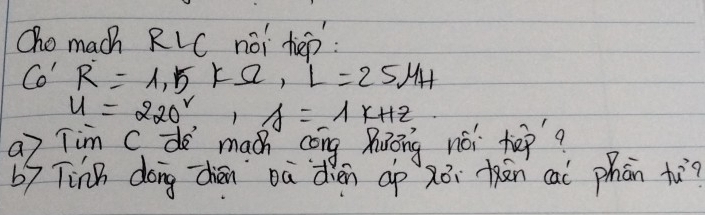 Cho mạch RLC nối tiếp:
Có R = 1,5 KΩ, L = 25 μH
U = 220V, f = 1 KHZ.
a) Tìm C để mạch cộng hưởng nối tiếp?
b) Tính dòng điện và điện áp rơi trên các phần tử?